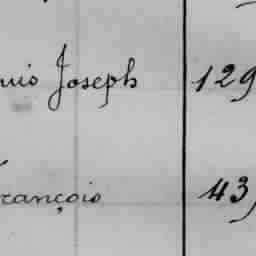 Joseph 129
François 43